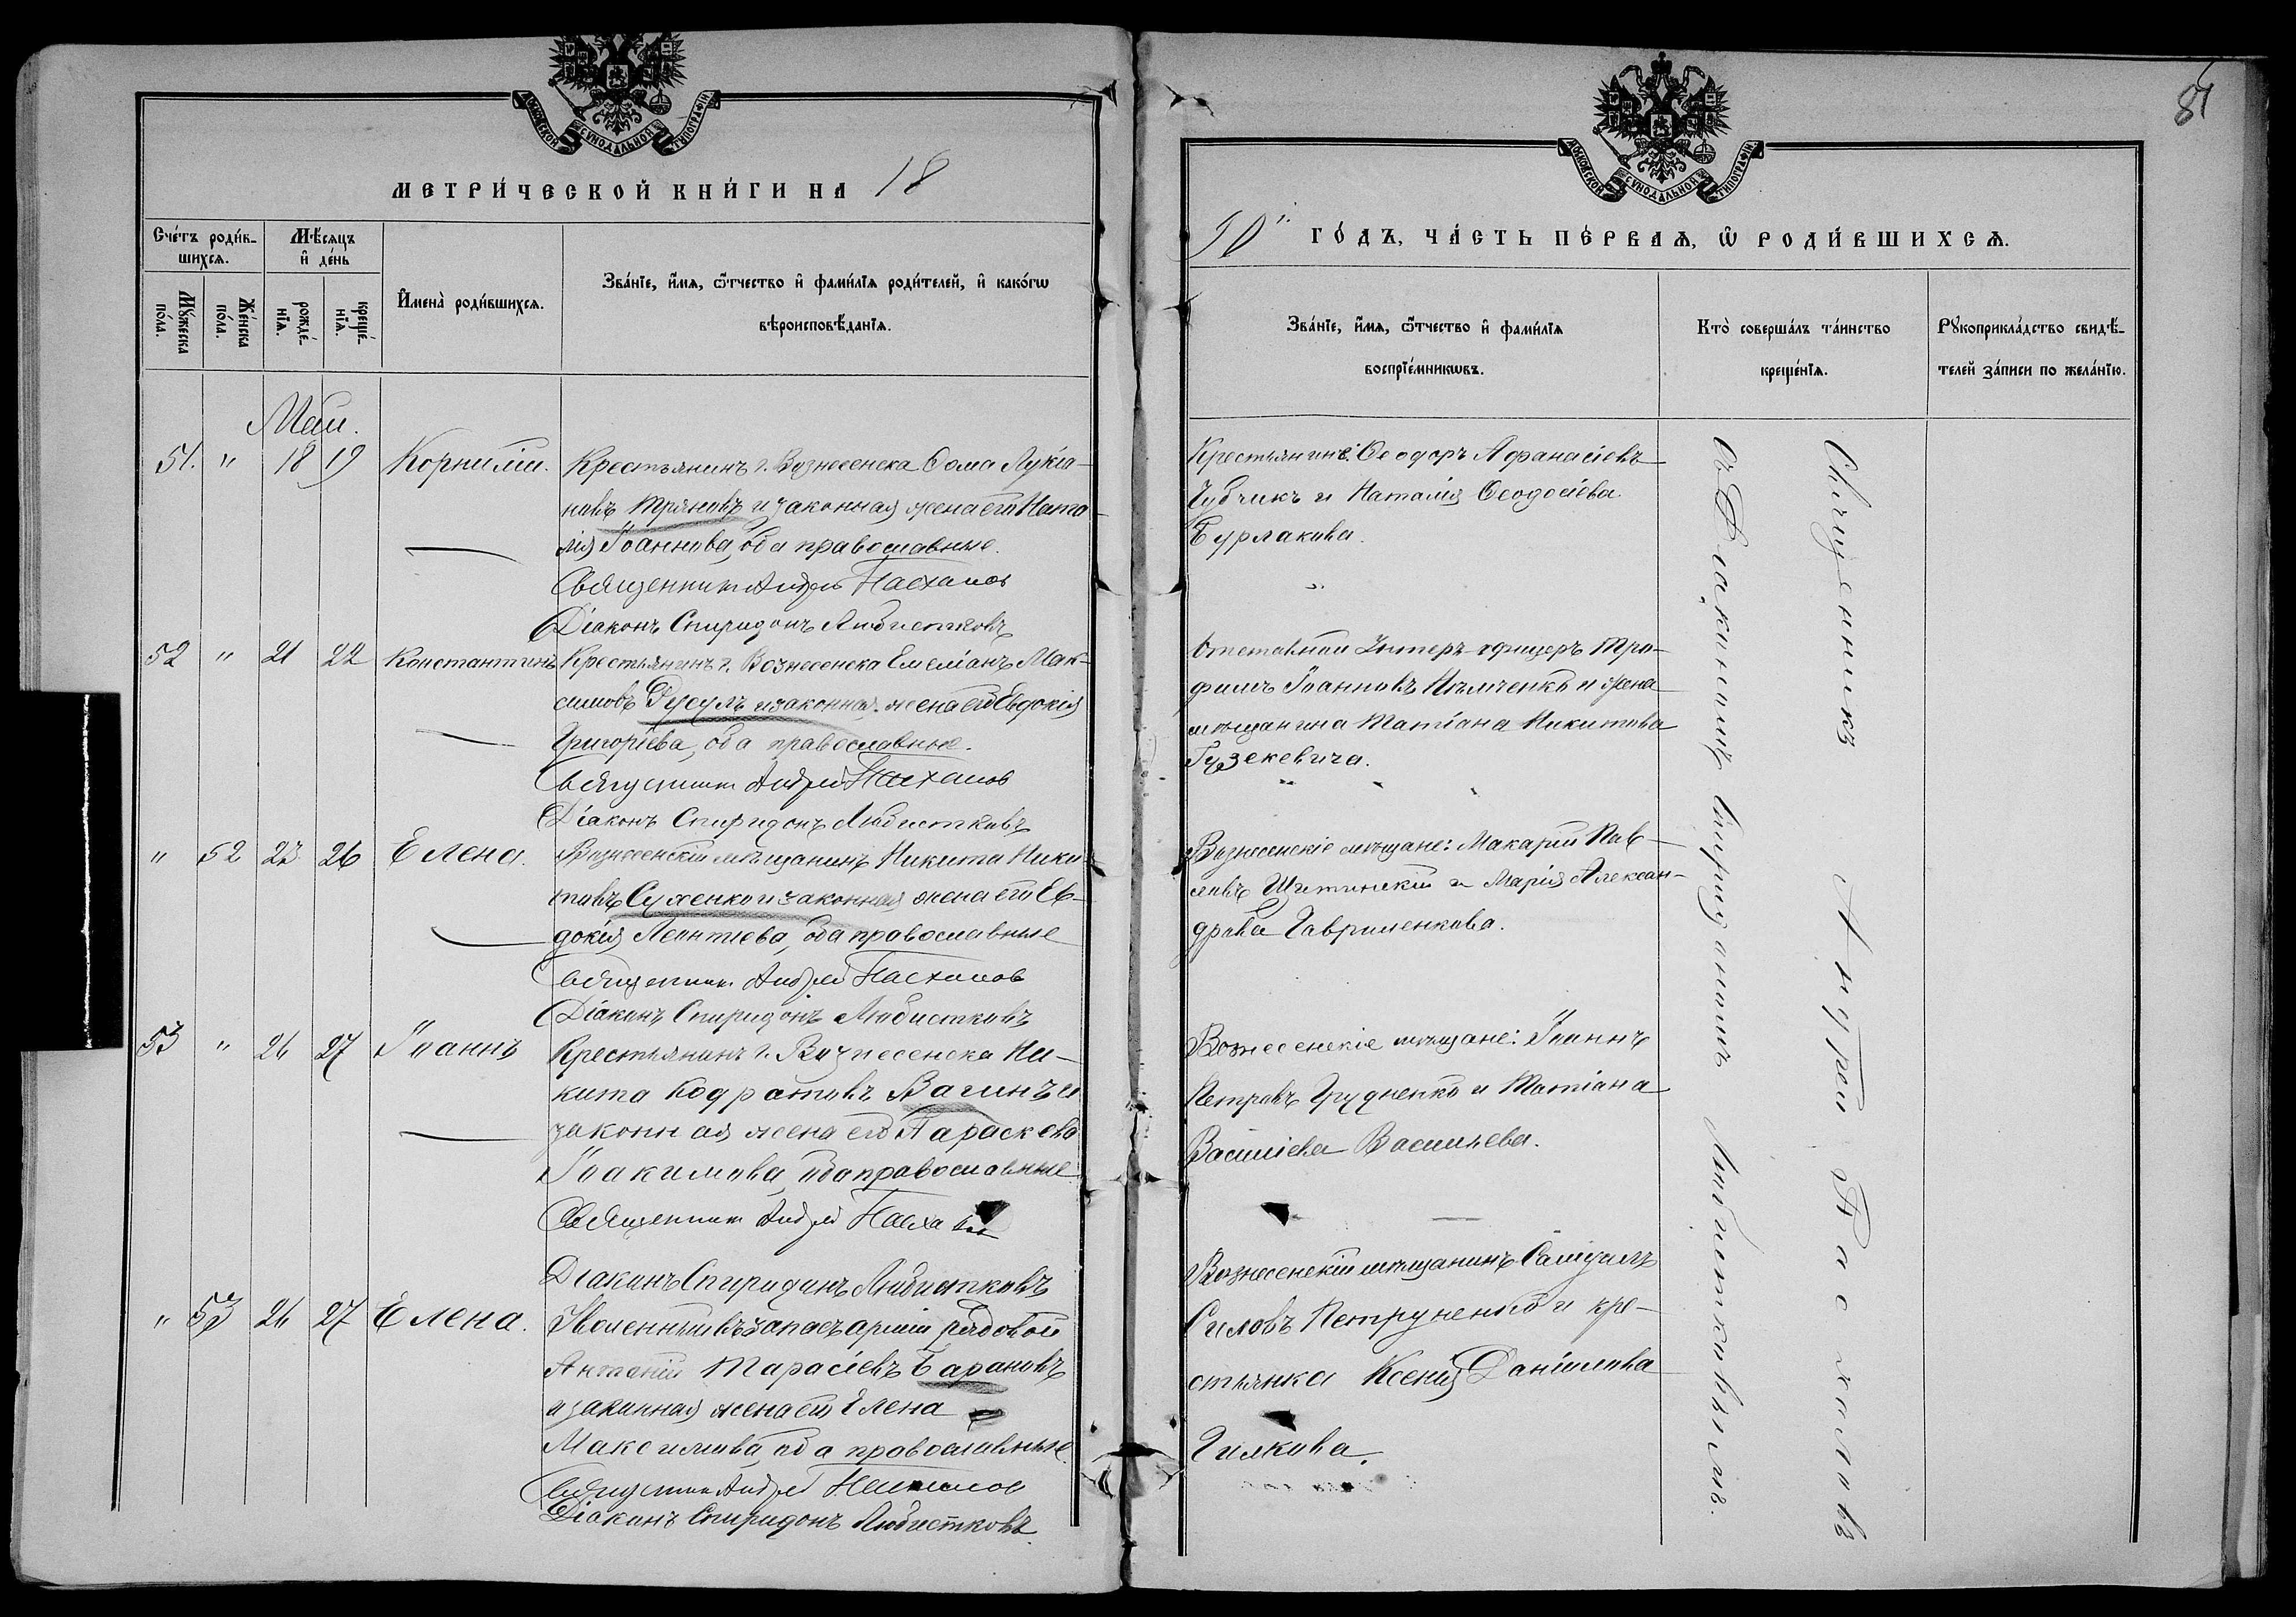 МОСКОВСКОЙ СѴНОДАЛЬНОЙ ТИПОГРАФІИ
МЕТРИ́ЧЕСКОЙ КНИ́ГИ НА 18
Сче́тъ роди́в-
шихсѧ.
Мѣ́сѧцъ
и҆ де́нь
Мꙋ́жеска
по́ла.
Же́нска
по́ла.
рожде́-
нїѧ.
креще́-
нїѧ.
И҆мена̀ роди́вшихсѧ.
Зва́нїе, и҆́мѧ, ѻ҆́тчество и҆ фами́лїѧ роди́телей, и҆ како́гѡ
вѣроисповѣ́данїѧ.
Май.
51. " 18 19 Корнилій. Крестьянинъ г. Вознесенска Ѳома Лукіа-
новъ Тряновъ и законная жена его Ната
лія Іоаннова, оба православные.
Священникъ Андрей Пасхалов
Діаконъ Спиридонъ Любистковъ
52 " 21 22 Константинъ Крестьянинъ г. Вознесенска Емеліанъ Мак-
симовъ и законная жена его Евдокія
Григоріева, оба православные.
Священникъ Андрей Пасхалов
Діаконъ Спиридонъ Любистковъ
" 52 23 26 Елена. Вознесенскій мѣщанинъ Никита Ники
товъ Сухенко и законная жена его Ев-
докія Леонтіева, оба православные
Священникъ Андрей Пасхалов
Діаконъ Спиридонъ Любистковъ
53 " 26 27 Іоаннъ Крестьянинъ г. Вознесенска Ни-
кита Кодратовъ Вагинъ и
законная жена его Параскева
Іоакимова, оба православные
Священникъ Андрей Пасхалов
Діаконъ Спиридонъ Любистковъ
" 53 26 27 Елена. Уволенный въ запасъ арміи рядовой
Антоній Тарасіевъ Барановъ
и законная жена его Елена
Максимова, оба православные.
Священникъ Андрей Пасхалов
Діаконъ Спиридонъ Любистковъ
85
МОСКОВСКОЙ СѴНОДАЛЬНОЙ ТИПОГРАФІИ
90й ГО́ДЪ, ЧА́СТЬ ПЕ́РВАѦ, Ѡ҆ РОДИ́ВШИХСѦ.
Зва́нїе, и҆́мѧ, ѻ҆́тчество и҆ фами́лїѧ
воспрїе́мникѡвъ.
Кто̀ соверша́лъ та́инство
креще́нїѧ.
Рꙋкоприкла́дство свидѣ́-
телей за́писи по жела́нїю.
Крестьянинъ Ѳеодоръ Аѳанасіевъ
Чубчикъ и Наталія Ѳеодосіева
Бурлакова.
Отставной Унтеръ-офицеръ Тро-
фимъ Іоанновъ Ильченко и жена
мѣщанина Татіана Никитова
Гузекевича.
Вознесенскіе мѣщане: Макарій Пав-
ловъ Щетинскій и Марія Алексан-
дрова Гавриленкова.
Вознесенскіе мѣщане: Іоаннъ
Петровъ Грудненко и Татіана
Василіева Васильева.
Вознесенскій мѣщанинъ
Силовъ Петруненко и кре-
стьянка Ксенія Даніилова
Гилкова.
Священникъ Андрей Пасхаловъ
съ Діакономъ Спиридономъ Любистковымъ.